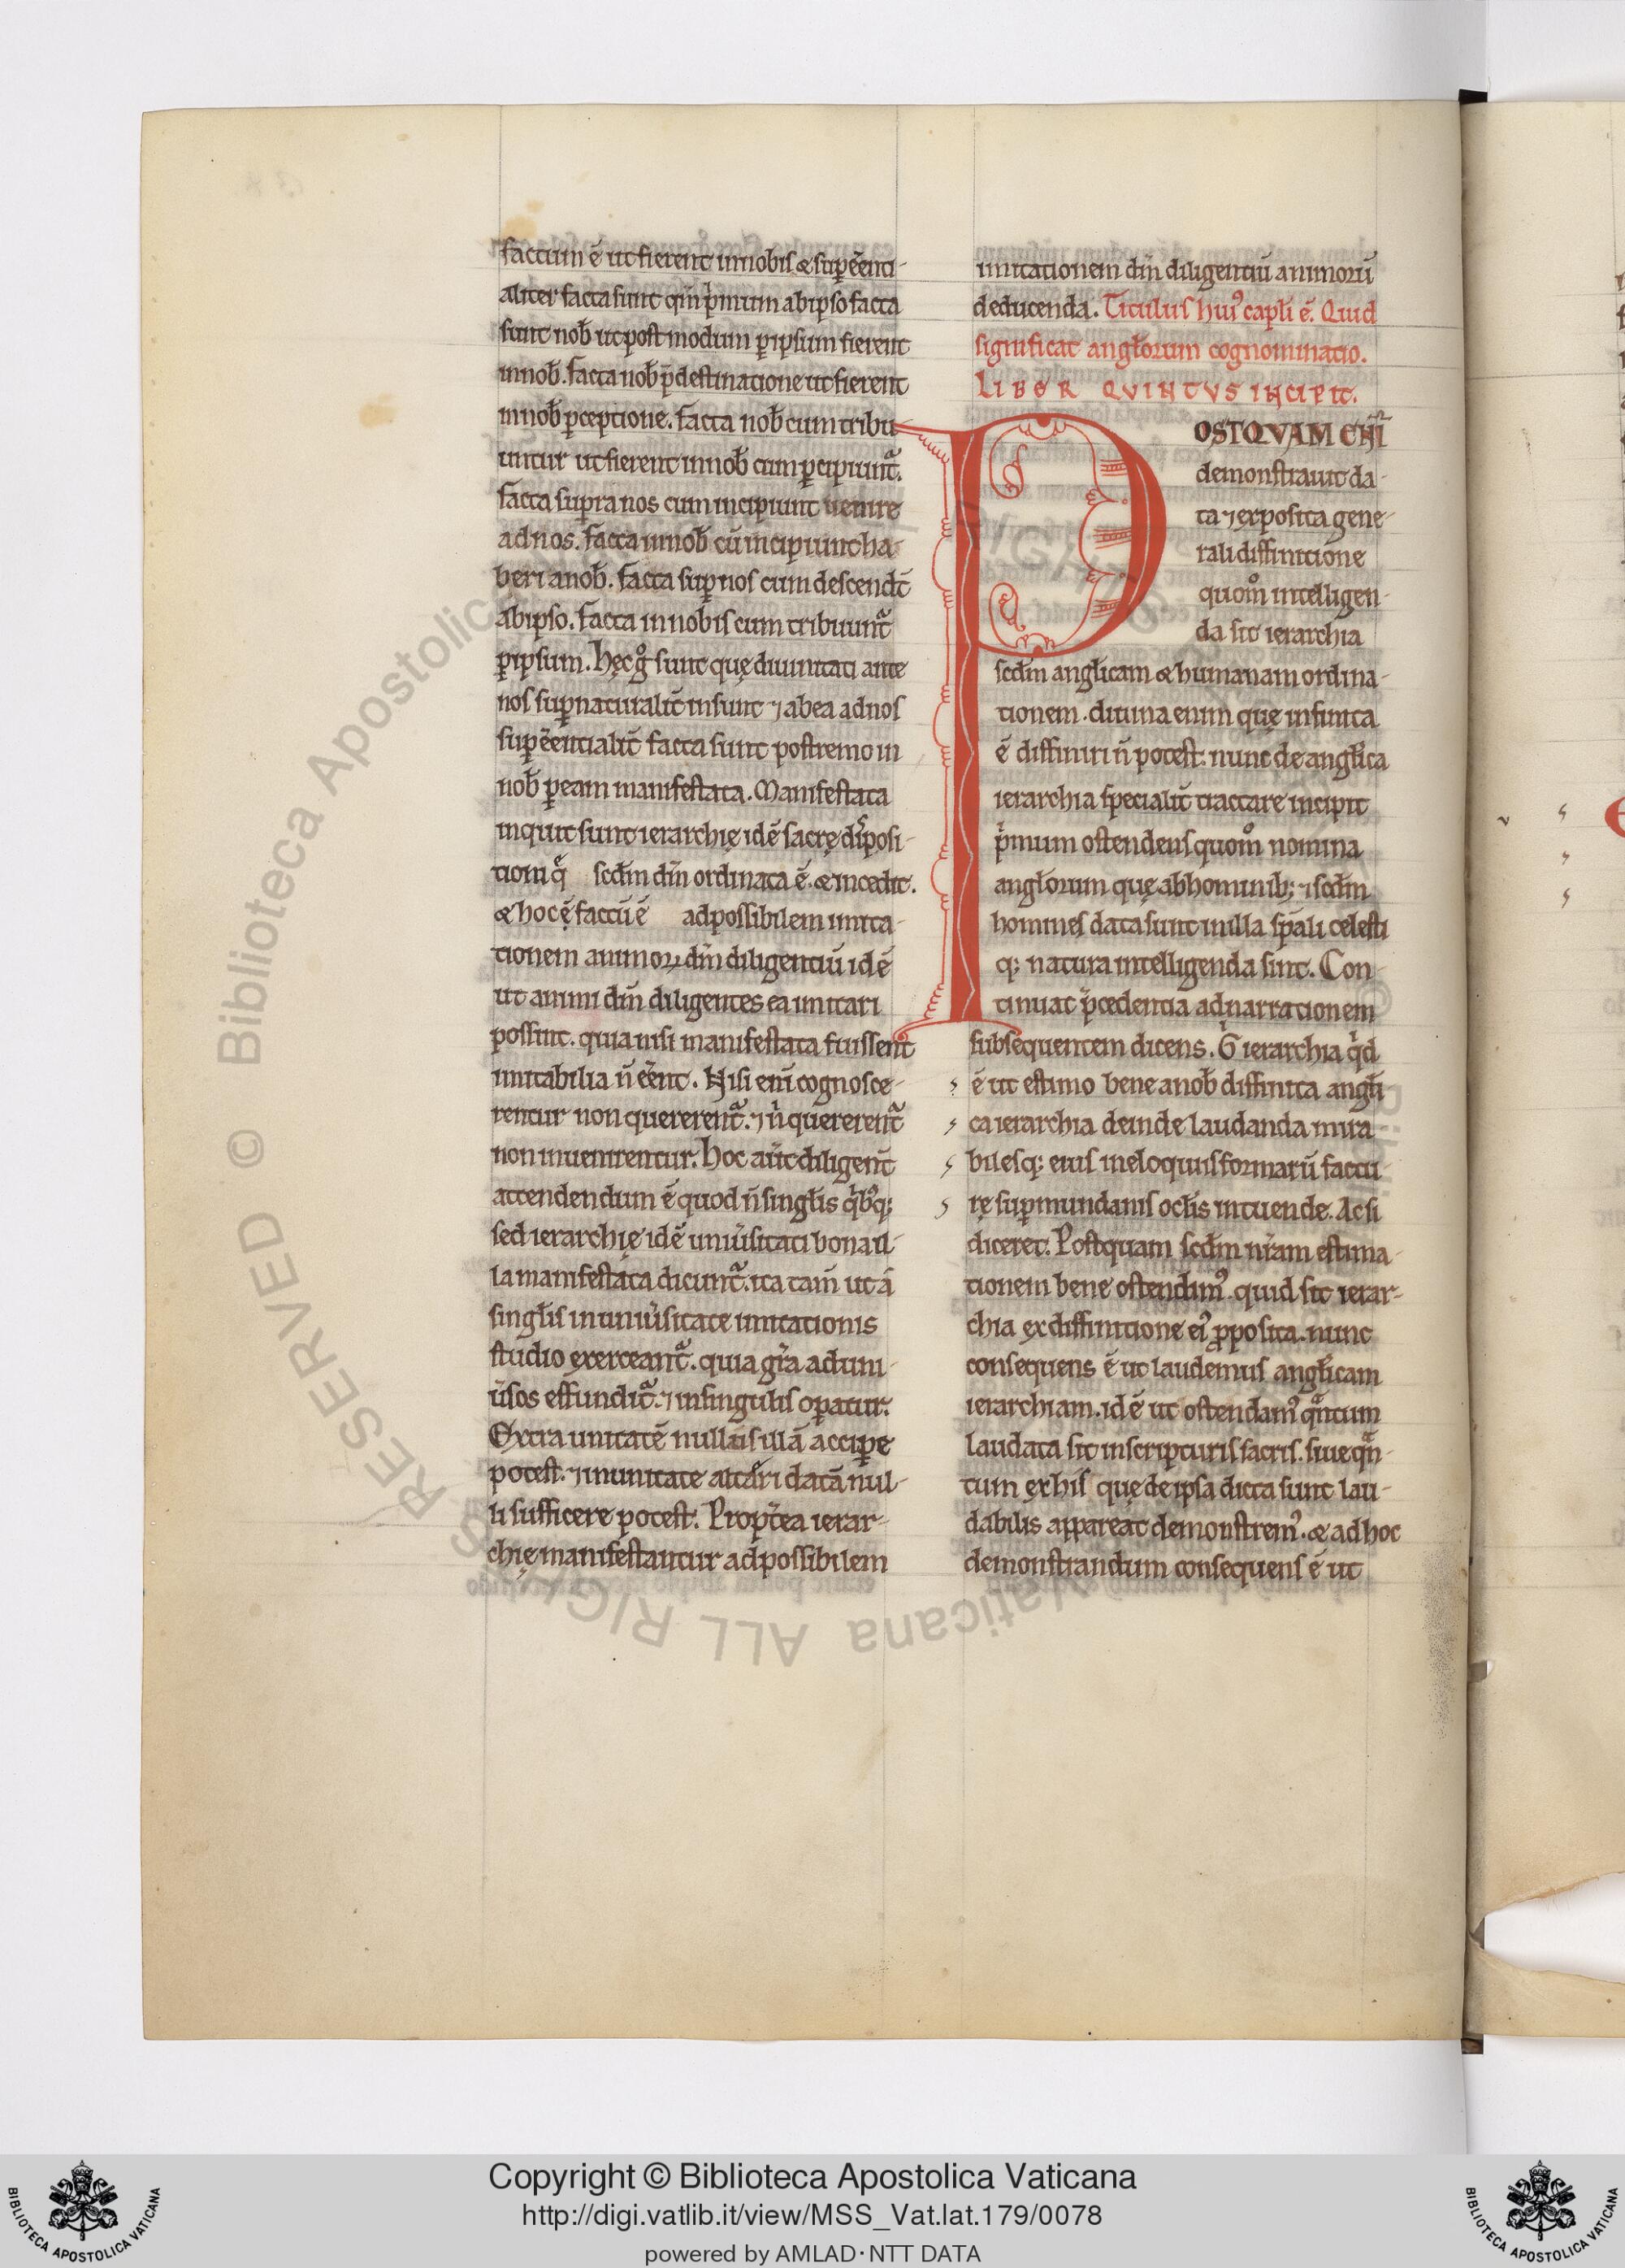 factum ē ut fierent in nobis & sup̄ēenti-
aliter facta sunt qm̄ p̍mum ab ipso facta
sunt nob̄ ut postmodum ꝑ ipsum fierent
in nob̄. facta nob̄ p̄destinatione ut fierent
in nob̄ ꝑceptione. facta nob̄ cum tribu
untur ut fierent in nob̄ cum ꝑcipiunt̃.
facta supra nos cum incipiunt uenire
ad nos. facta in nob̄ cū incipiunt ha-
beri a nob̄. facta suꝑ nos cum descendt̄
ab ipso. facta in nobis cum tribuunt̃
ꝑ ipsum. Hęc g̊ sunt quę diuinitati ante
nos suꝑnaturalit̄ insunt ⁊ ab ea ad nos
suꝑēentialit̄ facta sunt postremo in
nob̄ ꝑ eam manifestata. Manifestata
inquit sunt ierarchię idē sacrę disposi-
tioni q̄ scd̄m dm̄ ordinata ē. & incedit.
& hoc ę̄ factū ē ad possibilem imita-
tionem animoꝝ dm̄ diligentiū id ē
ut animi dm̄ diligentes ea imitari
possint. quia nisi manifestata fuissent
imitabilia n̄ ēent. Nisi eni̅ cognosce-
rentur non quererent̃. ⁊ n̄ quererent̃
non inuenirentur. Hoc aut̄ diligent̄
attendendum ē quod n̄ singl̄is q̍bꝫq;
sed ierarchię id ē uniu̍sitati bona il-
la manifestata dicunt̃. ita tam̄ ut a
singl̄is in uniu̍sitate imitationis
studio exerceant̃. quia gr̄a ad uni-
u̍sos effundit̃. ⁊ in singulis oꝑatur.
Extra unitatē nullus illā acciꝑe
potest. ⁊ in unitate alt̄i datā nul-
li sufficere potest. Propt̄ea ierar-
chię manifestantur ad possibilem
imitationem dm̄ diligentiū animorū
deducenda. Titulus huiꝰ capl̄i ē. Quid
significat angl̄orum cognominatio.
LIBER QUINTUS INCIPIT.
POSTQVAM
demonstrauit da-
ta ⁊ exposita gene-
rali diffinitione
quom̊ intelligen-
da sit ierarchia
scd̄m angl̄icam & humanam ordina-
tionem. diuina enim quę infinita
ē diffiniri n̄ potest: nunc de angl̄ica
ierarchia specialit̄ tractare incipit
p̍mum ostendens quom̊ nomina
angl̄orum quę ab hominib; ⁊ scd̄m
homines data sunt in illa sp̄ali celesti
q; natura intelligenda sint. Con-
tinuat p̄cedentia ad narrationem
subsequentem dicens. G̍ ierarchia q̍d
ē ut estimo bene a nob̄ diffinita angl̄i
ca ierarchia deinde laudanda mira
bilesq; eius in eloquiis formarū factu-
rę suꝑmundanis ocl̄is intuende. Ac si
diceret. Postquam scd̄m nr̄am estima-
tionem bene ostendimꝰ. quid sit ierar-
chia ex diffinitione eiꝰ ꝓposita. nunc
consequens ē ut laudemus angl̄icam
ierarchiam. id ē ut ostendamꝰ q̃ntum
laudata sit in scripturis sacris. siue q̃n-
tum ex his quę de ipsa dicta sunt lau-
dabilis appareat demonstremꝰ. & ad hoc
demonstrandum consequens ē ut
Copyright © Biblioteca Apostolica Vaticana
http://digi.vatlib.it/view/MSS_Vat.lat.179/0078
powered by AMLAD·NTT DATA
BIBLIOTECA APOSTOLICA VATICANA
BIBLIOTECA APOSTOLICA VATICANA
© Biblioteca Apostolica Vaticana ALL RIGHTS RESERVED